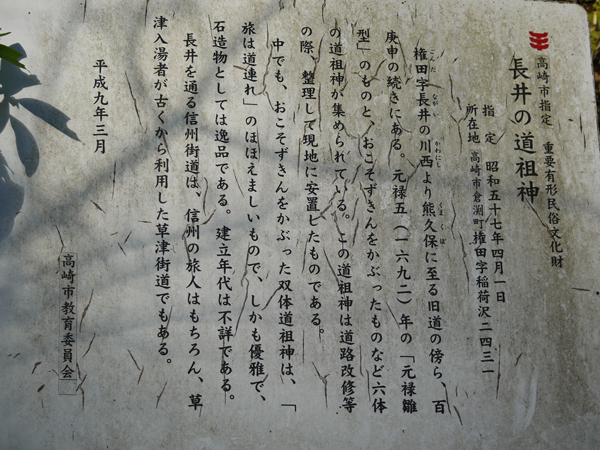 高崎市指定　重要有形民俗文化財
長井の道祖神
指定　昭和五十七年四月一日
所在地　高崎市倉渕町権田字稲荷沢二四三一
権田字長井の川西より熊久保に至る旧道の傍ら、百
ごんた　ながい　かわにし　くまくぼ
庚申の続きにある。元禄五（一六九二）年の「元禄雛
型」のものと、おこそずきんをかぶったものなど六体
の道祖神が集められている。この道祖神は道路改修等
の際、整理して現地に安置したものである。
中でも、おこそずきんをかぶった双体道祖神は、「
旅は道連れ」のほほえましいもので、しかも優雅で、
石造物としては逸品である。建立年代は不詳である。
長井を通る信州街道は、信州の旅人はもちろん、草
津入湯者が古くから利用した草津街道でもある。
平成九年三月
高崎市教育委員会